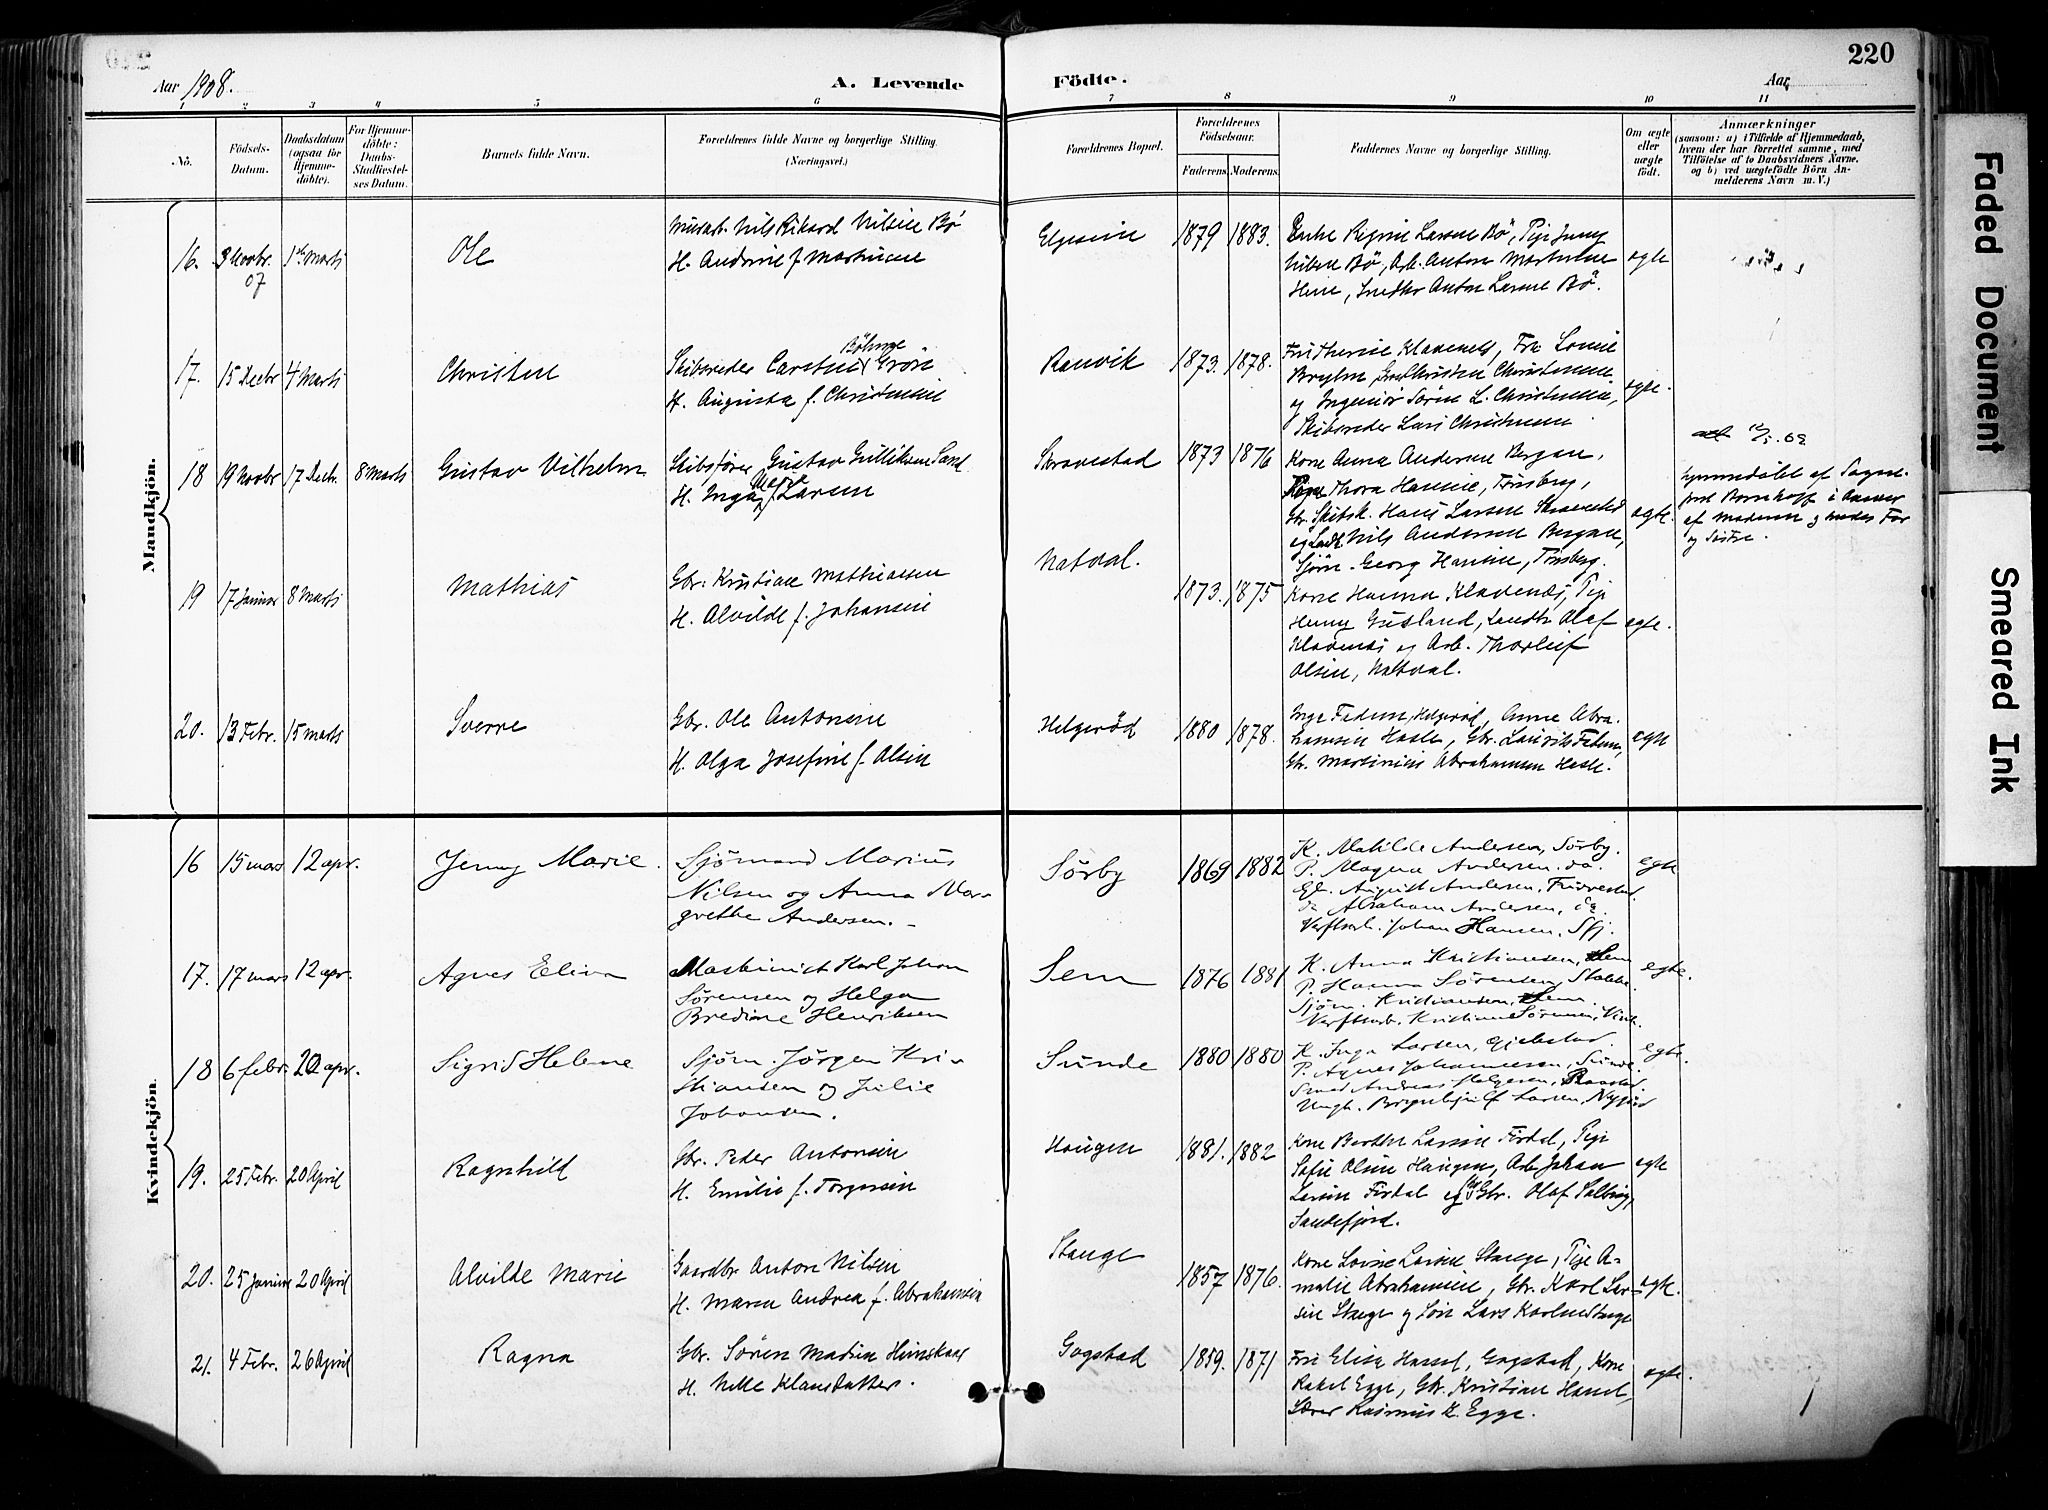 220
Aar 1908.
A. Levende Födte.
Aar
1 2 3 4 5 6 7 8 9 10 11
No.
Födsels-
Datum.
Daabsdatum
(ogsaa för
Hjemme-
döbte).
For Hjemme-
döbte:
Daabs-
Stadfæstel-
ses Datum.
Barnets fulde Navn.
Forældrenes fulde Navne og borgerlige Stilling.
(Næringsvei.)
Forældrenes Bopæl.
Forældrenes
Födselsaar.
Faderens. Moderens.
Faddernes Navne og borgerlige Stilling.
Om ægte
eller
uægte
födt.
Anmærkninger
(saasom: a) i Tilfælde af Hjemmedaab,
hvem der har forrettet samme, med
Tilföielse af to Daabsvidners Navne.
og b) ved uægtefödte Börn An-
melderens Navn m. V.)
Mandkjön.
16. 3 Novbr. 07 1ste Marts
Ole
Murarb. Nils Rikard Nilsen Bö
H. Andrine f. Martinsen
Elgesem
1879 1883.
Enke Regine Larsen Bö, Pige Jenny
Nilsen Bö, Arb. Anton Martinsen
Hem, Snedker Anton Larsen Bö.
ægte
17. 15 Decbr 4 Marts
Christen
Böhme
Skibsreder Carsten Grön
H. Augusta f. Christensen
Ranvik
1873. 1878.
Fru Therese Klavenes, Frk Louise
Bryhn, Christen Christensen
og Ingeniör Sören L. Christensen,
Skibsreder Lars Christensen
ægte.
18 19 Novbr 17 Decbr. 8 Marts
Gustav Vilhelm
Skibsförer Gustav Gulliksen Sand
H. Inga Marie f. Larsen
Skravestad
1873 1876
Kone Anna Andersen Bergan,
Pige Thora Hansen, Tönsberg,
Gbr. Skibsk. Hans Larsen Skravestad
og Nils Andersen Bergan,
Sjöm. Georg Hansen, Tönsberg.
ægte.
Hjemmedöbt af Sogne-
prest Bornhoff i Nærvær
af Moderen og hendes Far
og Söstre.
19 17 Januar 8 Marts
Mathias
Gbr. Kristian Mathiassen
H. Alvilde f. Johansen
Natval.
1873. 1875
Kone Hanna Klavenes, Pige
Henny Gusland, Landh. Olaf
Klavenes og Arb. Thorleif
Olsen, Natval.
ægte.
20. 13 Febr. 15 Marts
Sverre
Gbr. Ole Antonsen
H. Olga Josefine f. Olsen
Helgeröd
1880 1878.
Inga Fadum, Helgeröd, Anne Abra-
hamsen Hasle, Gbr. Lauritz Fadum,
Gbr. Martinius Abrahamsen Hasle.
ægte
Kvindekjön.
16 15 mars 12 apr.
Jenny Marie.
Sjömand Marius
Nilsen og Anna Mar-
grethe Andersen.
Sörby
1869 1882
K. Matilde Andersen, Sörby.
P. Magna Andersen. do
Gbr. August Andersen, Fruvestad.
do Abraham Andersen, do.
Verftsarb. Johan Hansen, Sfj.
egte
17. 17 mars 12 apr.
Agnes Elina
Maskinist Karl Johan
Sörensen og Helga
Bredine Henriksen
Sem
1876 1881
K. Anna Kristiansen, Sem
P. Hanna Sörensen, Stokke.
Sjöm. Kristiansen, Sem.
Verftsarb. Kristian Sörensen,
egte.
18 6 febr. 20 apr.
Sigrid Helene
Sjöm. Jörgen Kri-
stiansen og Julie
Johansen.
Sunde
1880 1880
K. Inga Larsen, Gjekstad.
P. Agnes Johannesen, Sunde.
Smed Andreas Helgesen, Raastad.
Ungk. Larsen, Nygaard
egte.
19. 25 Febr. 20 April
Ragnhild
Gbr. Peder Antonsen
H. Emilie f. Torgersen
Haugen
1881. 1882
Kone Berthe Larsen Firdal, Pige
Sofie Olsen Haugen, Arb. Johan
Larsen Firdal og Gbr. Olaf Solberg,
Sandefjord.
ægte
20. 25 Januar 20 April
Alvilde Marie
Gaardbr. Anton Nilsen
H. Maren Andrea f. Abrahamsen
Stange
1857 1876.
Kone Lovise Larsen Stange, Pige A-
malie Abrahamsen, Gbr. Karl Lar-
sen Stange og Sön Lars Karlsen Stange
ægte.
21. 4 Febr. 26 April
Ragna
Gbr. Sören Madsen Himskaar
H. Nille Klausdatter.
Gogstad
1859. 1871
Fru Elisa Hassel, Gogstad, Kone
Rakel Egge, Gbr. Kristian Hassel,
Lærer Rasmus K. Egge.
ægte.
Faded Document
Smeared Ink